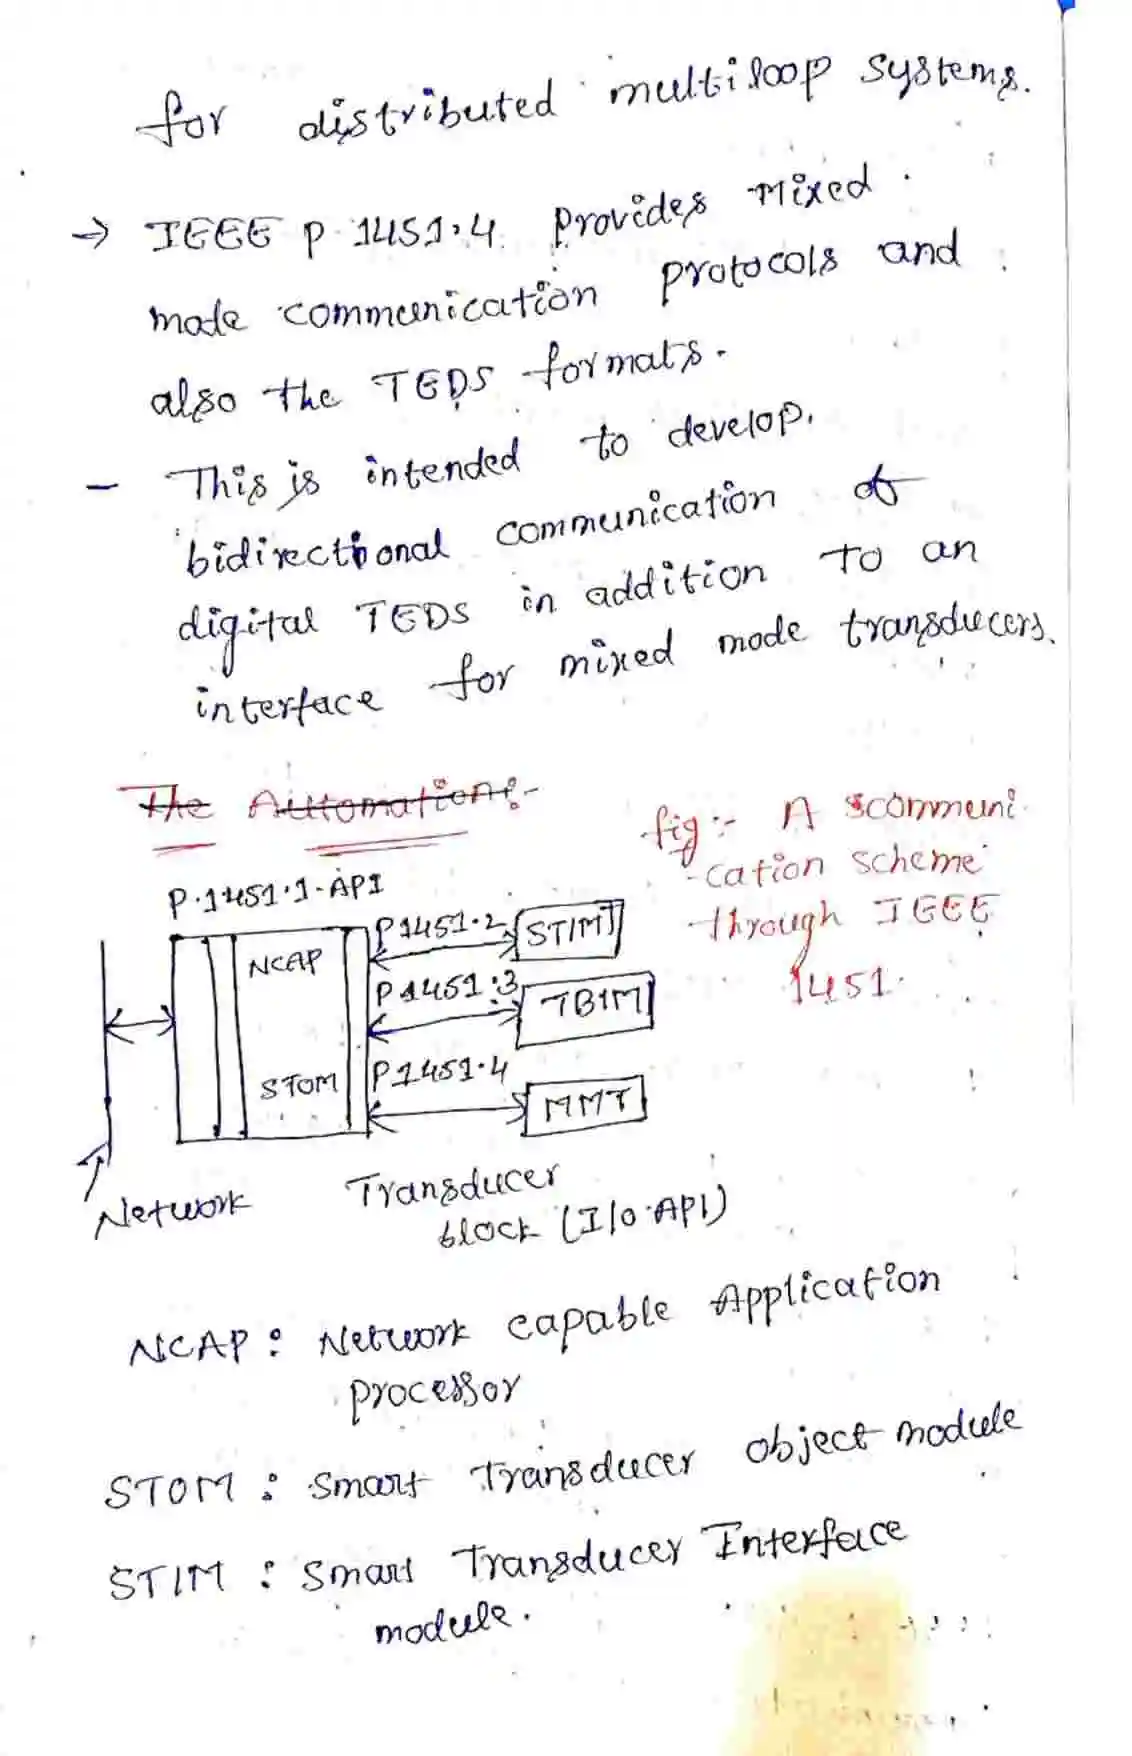 for distributed multiloop systems.
→ IEEE P 1451.4 provides Mixed
mode communication protocols and
also the TEDS formats.
- This is intended to develop.
bidirectional communication of
digital TEDS in addition to an
interface for mixed mode transducers.
The Automation:-
fig:- A scommuni
-cation scheme
through IEEE
1451.
P.1451.1-API
NCAP
STOM
P1451.2
STIM
P1451.3
TBIM
P1451.4
MMT
Network
Transducer
block (I/O.API)
NCAP: Network capable Application
processor
STOM: Smart Transducer object module
STIM: Smart Transducer Interface
module.